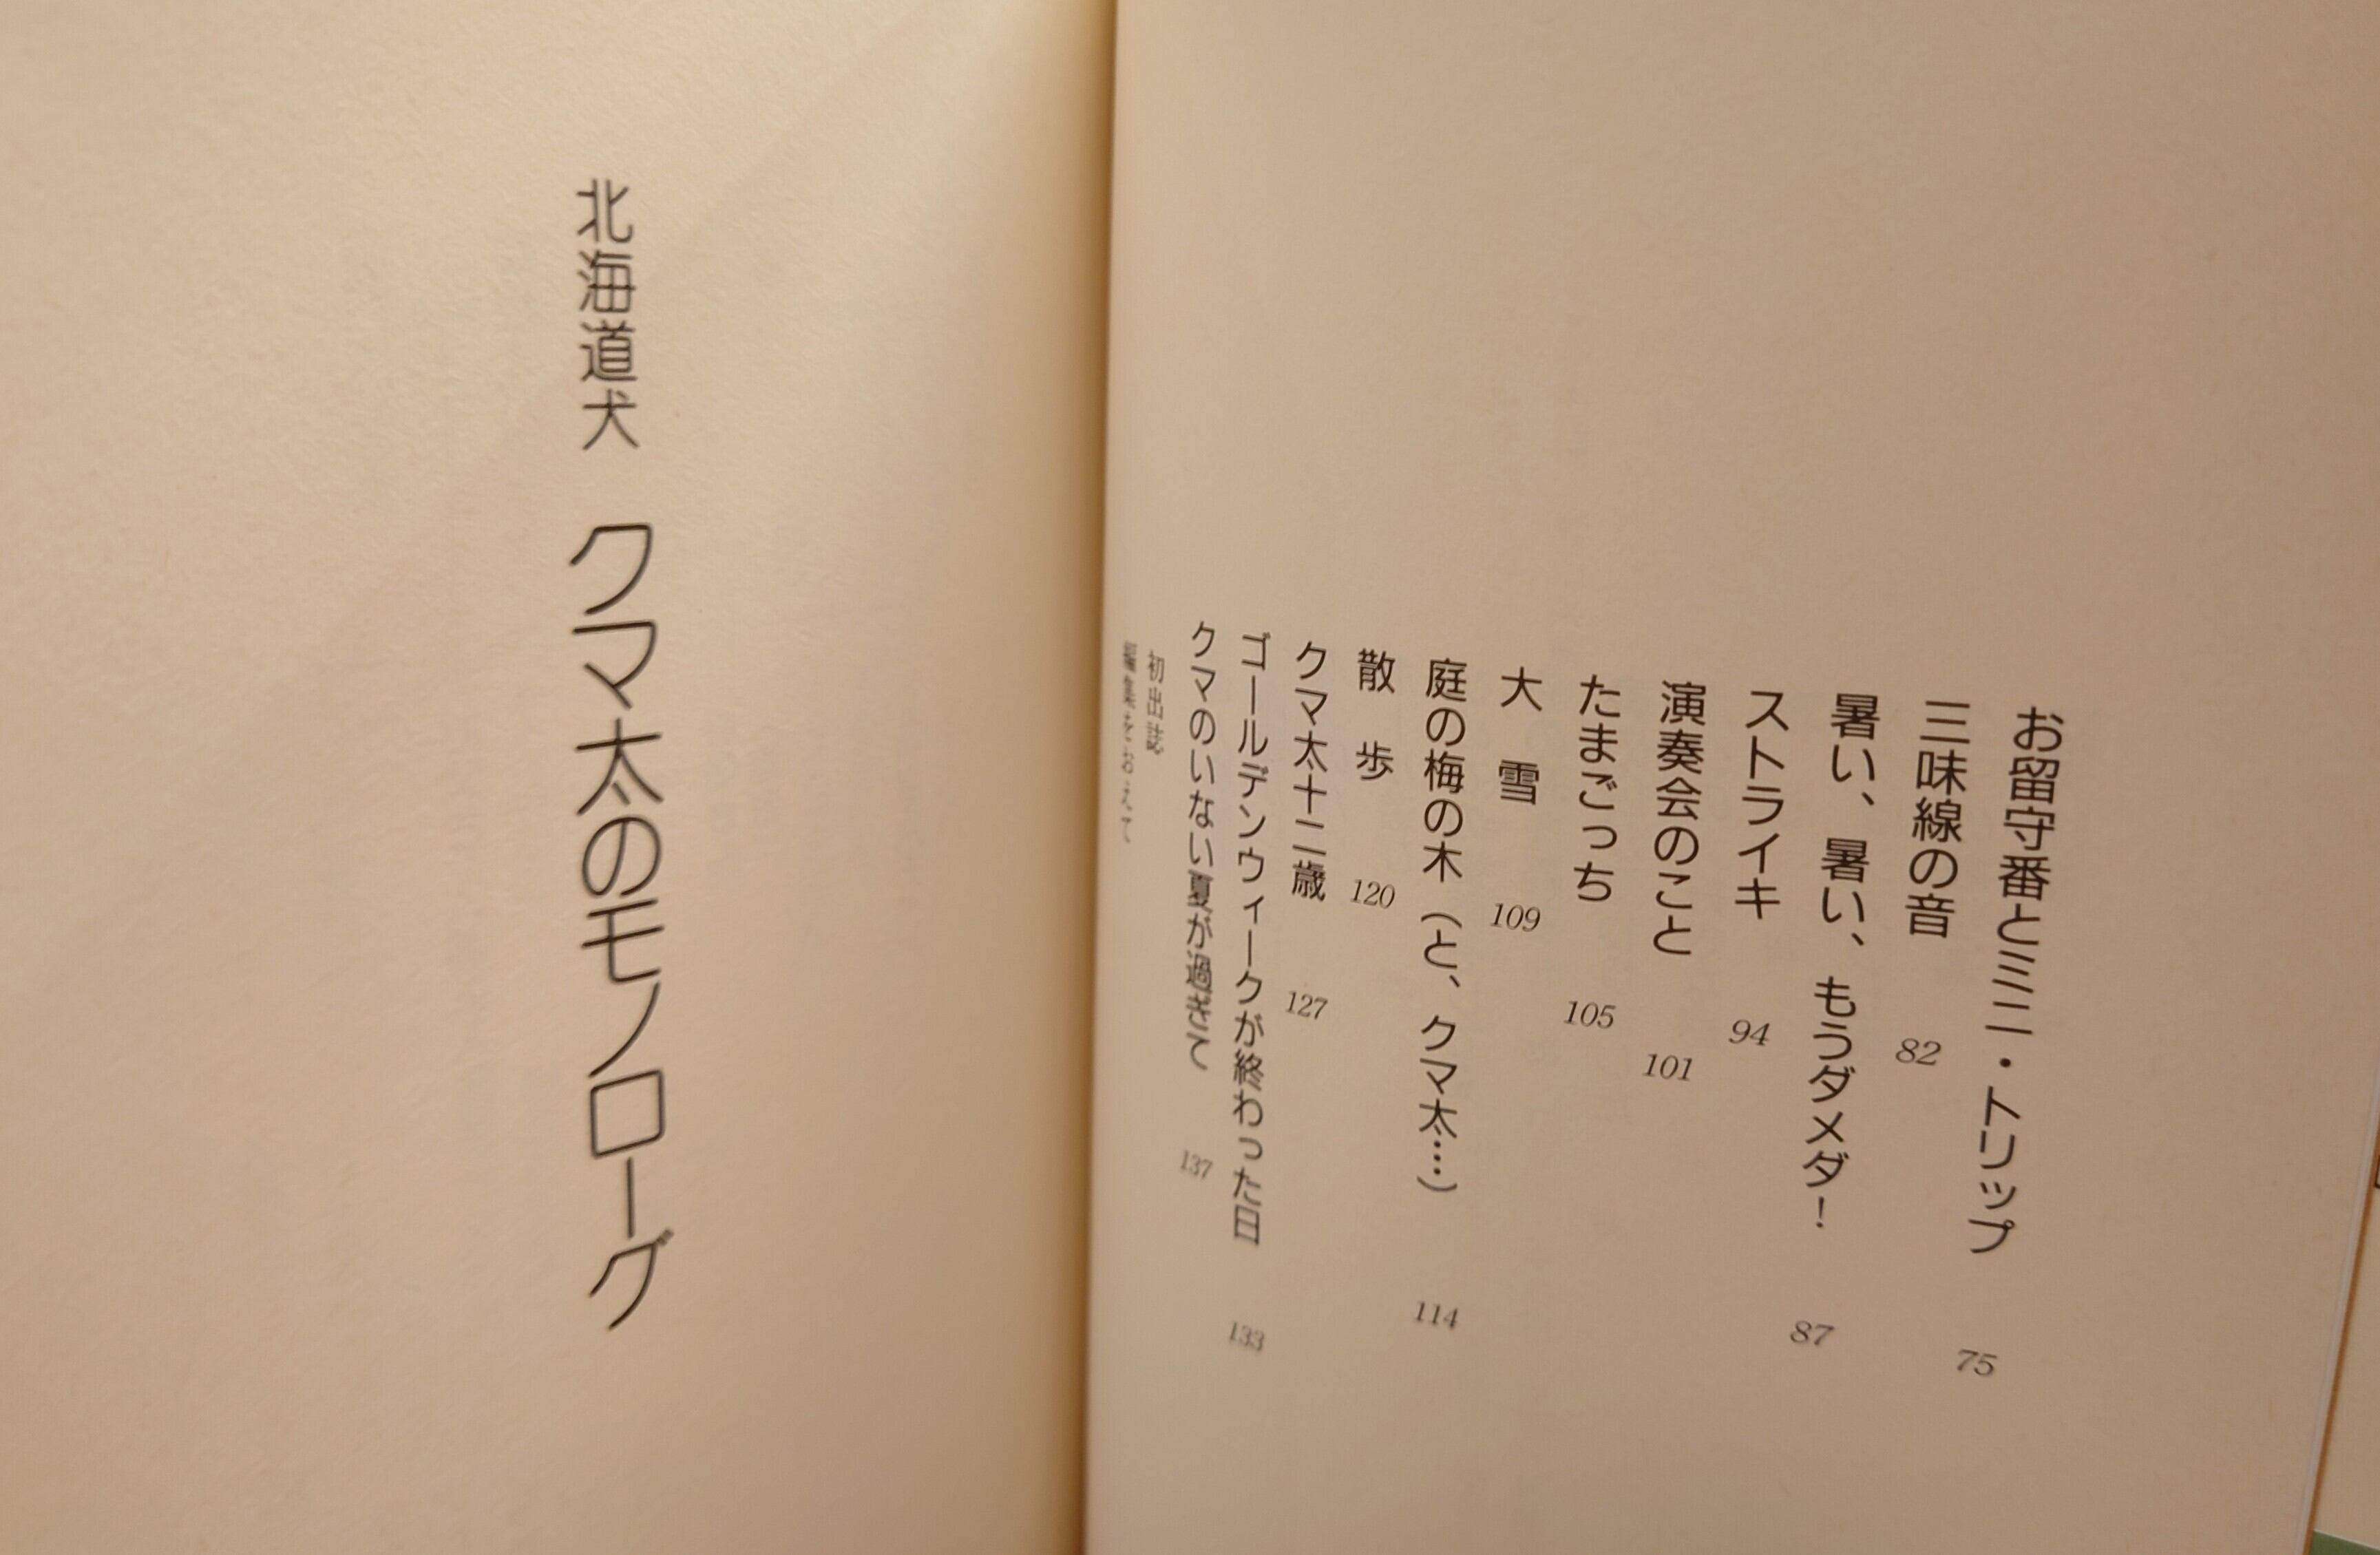 お留守番とミニ・トリップ 75
三味線の音 82
暑い、暑い、もうダメダ! 87
ストライキ 94
演奏会のこと 101
たまごっち 105
大 雪 109
庭の梅の木(と、クマ太…) 114
散 歩 120
クマ太十二歳 127
ゴールデンウィークが終わった日 133
クマのいない夏が過ぎて 137
初出誌
編集をおえて
北海道犬 クマ太のモノローグ